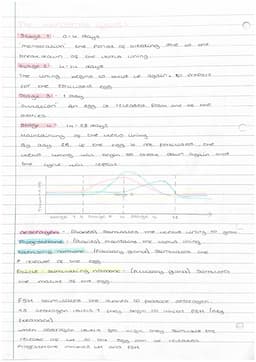 Stage 1: 0-4 days
menstruation the period of bleeding due to the
breakdown of the uterus lining
Stage 2: 4-14 days
The lining begins to build up again, to prepare
for the fertilised egg
Stage 3: 1 day
ovulation an egg is released from one of the
ovaries
Stage 4: 14-28 days
Maintaining of the uterus lining
By day 28, if the egg is not fertilised the
uterus lining will begin to break down again and
the cycle will repeat
Stage 1 Stage 2
oestrogen - (ovaries) stimulates the uterus lining to grow
Progesterone - (ovaries) maintains the uterus lining
Luteinising hormone - (pituitary gland) stimulates the
release of the egg
Follicle stimulating hormone - (pituitary gland) stimulates
the mature of an egg
FSH stimulates the ovaries to produce oestrogen.
As oestrogen levels ↑ they begin to inhibit FSH (neg
feedback)
when oestrogen levels get high they stimulate the
release of LH so the egg can be released
Progesterone inhibits LH and FSH